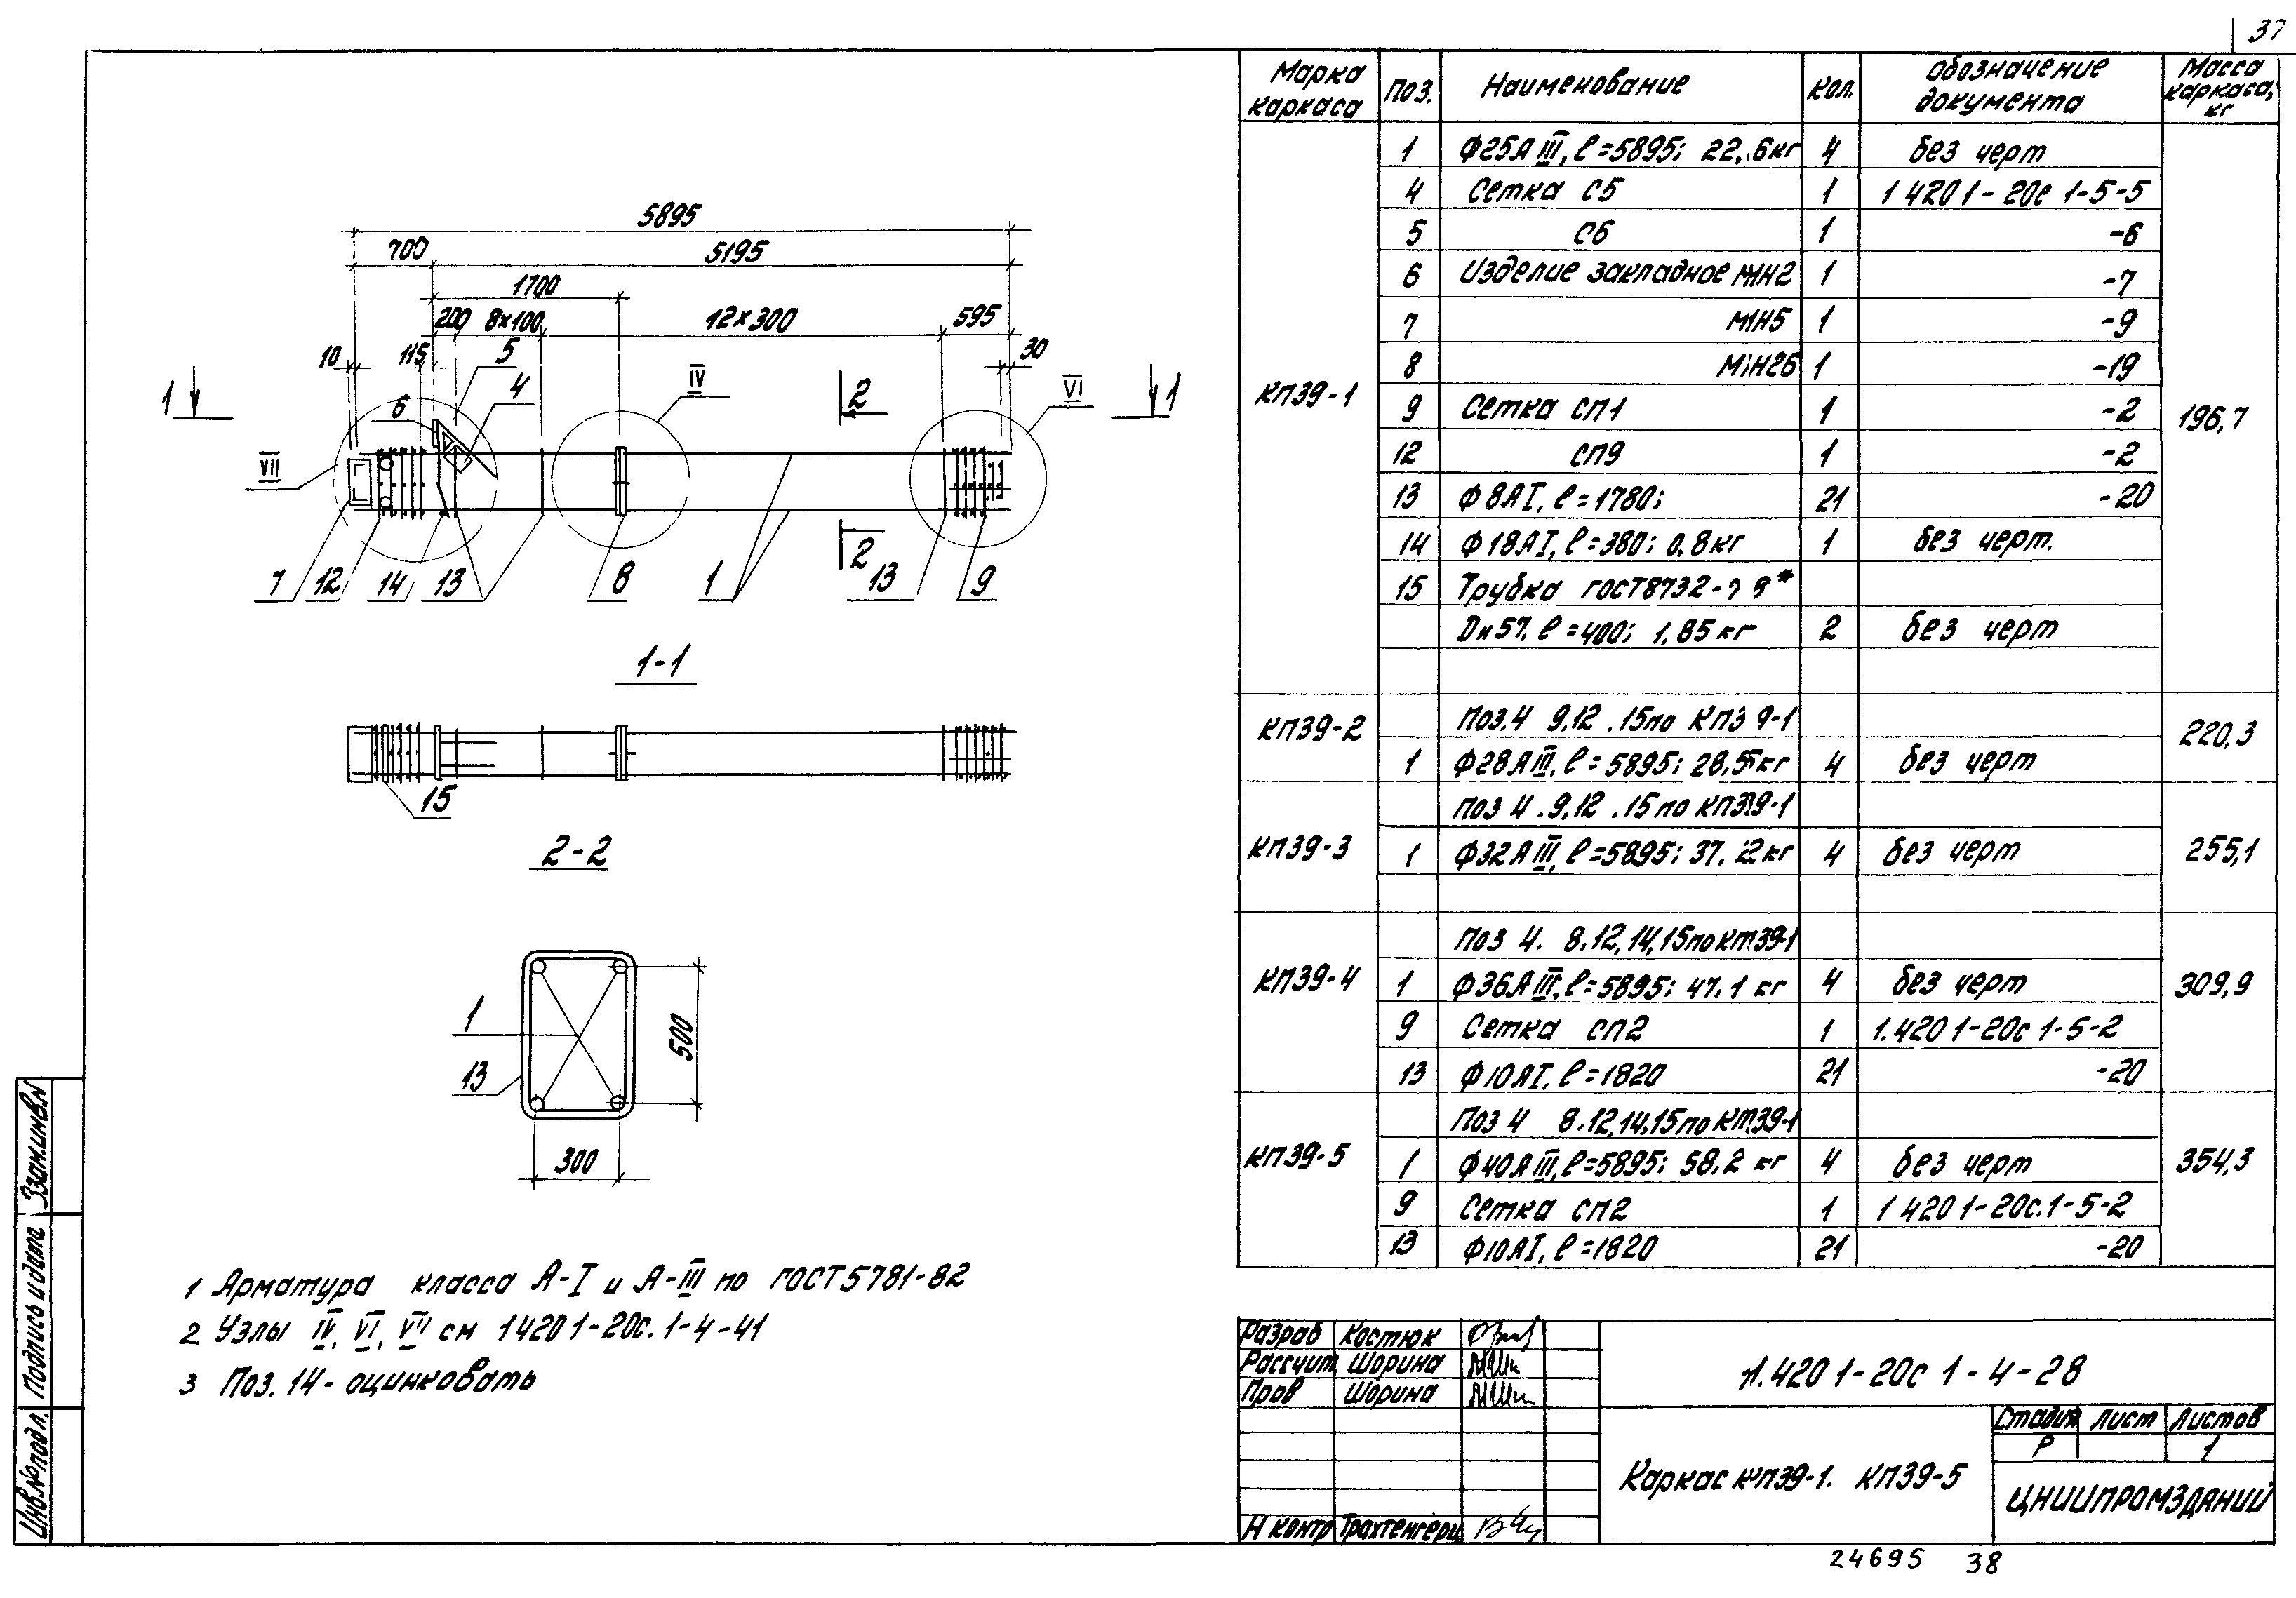 37
5895
700 5195
1700
200 8×100 12×300 595
10 115 5 30
1 6 4 IV 2 VI 1
VII
7 12 14 13 8 1 2 13 9
1-1
15
2-2
1
13
500
300
1 Арматура класса А-I и А-III по ГОСТ 5781-82
2 Узлы IV, VI, VII см 1 420 1-20с. 1-4-41
3 Поз. 14- оцинковать
Марка каркаса Поз. Наименование Кол. Обозначение документа Масса каркаса, кг
КП39-1 196,7
1 Ф25АIII, ℓ=5895; 22,6кг 4 без черт
4 Сетка С5 1 1 420 1-20с 1-5-5
5 С6 1 -6
6 Изделие закладное МН2 1 -7
7 МН5 1 -9
8 МН26 1 -19
9 Сетка СП1 1 -2
12 СП9 1 -2
13 Ф8АI, ℓ=1780; 21 -20
14 Ф18АI, ℓ=380; 0.8кг 1 без черт.
15 Трубка ГОСТ8732- 8*
Dн57, ℓ=400; 1.85кг 2 без черт
КП39-2 220,3
Поз.4 9,12 .15по КП39-1
1 Ф28АIII, ℓ=5895; 28,5кг 4 без черт
КП39-3 255,1
Поз 4 . 9,12 .15 по КП39-1
1 Ф32АIII, ℓ=5895; 37.2кг 4 без черт
КП39-4 309,9
Поз 4. 8.12,14,15по КП39-1
1 Ф36АIII, ℓ=5895; 47.1 кг 4 без черт
9 Сетка СП2 1 1.420 1-20с 1-5-2
13 Ф10АI, ℓ=1820 21 -20
КП39-5 354,3
Поз 4 8.12,14,15по КП39-1
1 Ф40АIII, ℓ=5895; 58,2 кг 4 без черт
9 Сетка СП2 1 1 420 1-20с.1-5-2
13 Ф10АI, ℓ=1820 21 -20
Разраб Костюк
Рассчит. Шорина
Пров Шорина
Н контр Трахтенгерц
1.420 1-20с 1-4-28
Каркас КП39-1. КП39-5
Стадия Лист Листов
Р 1
ЦНИИПРОМЗДАНИЙ
24695 38
Взам.инв.N
Подпись и дата
Инв.№подл.